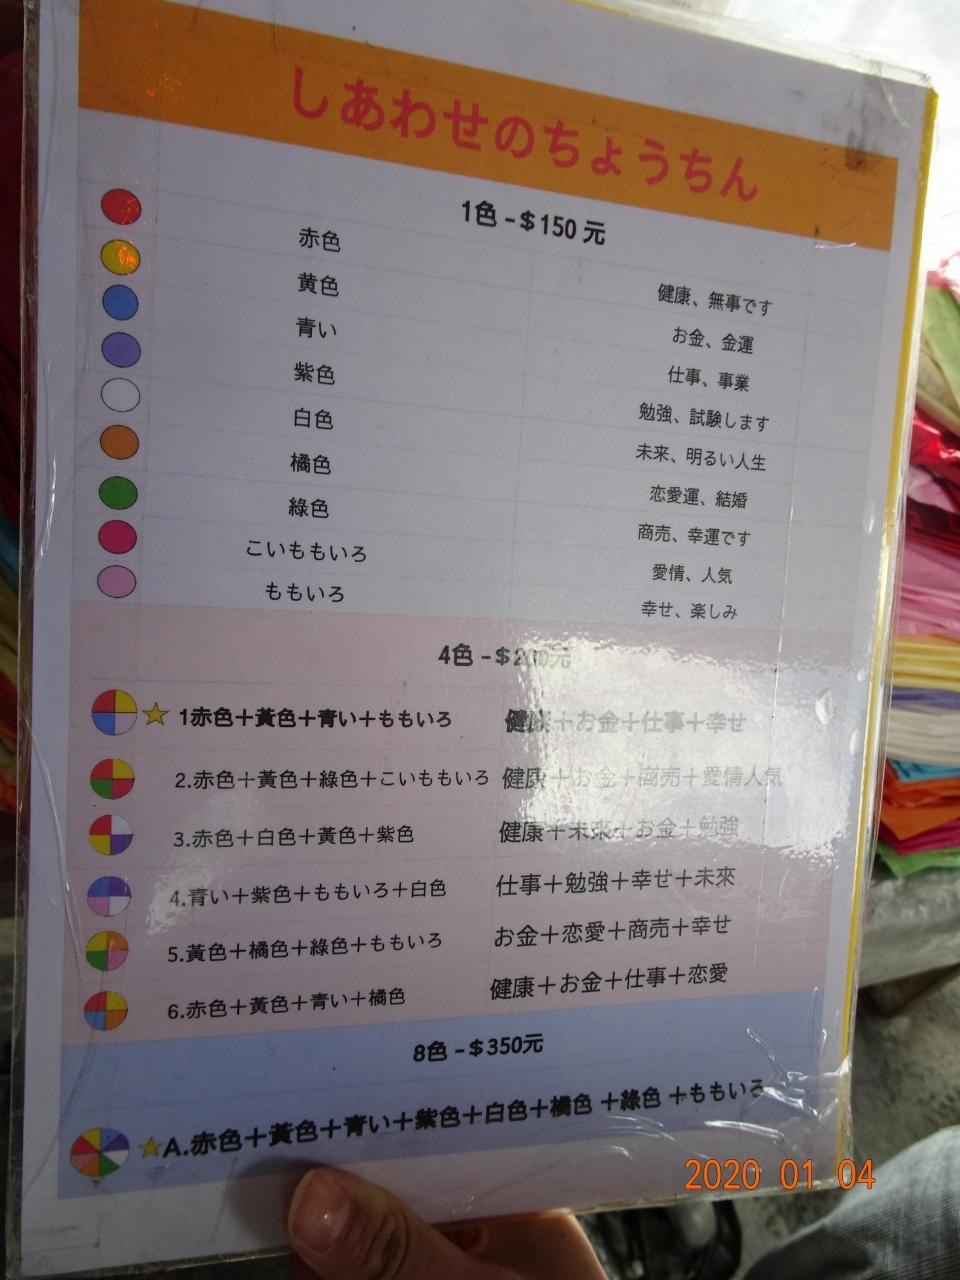 しあわせのちょうちん
1色-$150元
赤色 健康、無事です
黄色 お金、金運
青い 仕事、事業
紫色 勉強、試験します
白色 未来、明るい人生
橘色 恋愛運、結婚
綠色 商売、幸運です
こいももいろ 愛情、人気
ももいろ 幸せ、楽しみ
4色-$200元
1赤色+黃色+青い+ももいろ 健康+お金+仕事+幸せ
2.赤色+黃色+綠色+こいももいろ 健康+お金+商売+愛情人気
3.赤色+白色+黃色+紫色 健康+未來+お金+勉強
4.青い+紫色+ももいろ+白色 仕事+勉強+幸せ+未來
5.黃色+橘色+綠色+ももいろ お金+恋愛+商売+幸せ
6.赤色+黃色+青い+橘色 健康+お金+仕事+恋愛
8色-$350元
A.赤色+黃色+青い+紫色+白色+橘色 +綠色 +ももいろ
2020 01 04